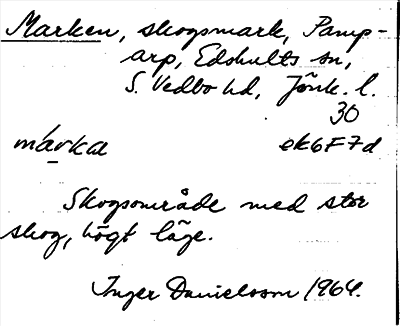 Marken, skogsmark, Pamp-
arp, Edshults sn,
S. Vedbo hd, Jönk. l.
30
márka ek6F7d
Skogsområde med stor
skog, högt läge.
Inger Danielsson 1964.